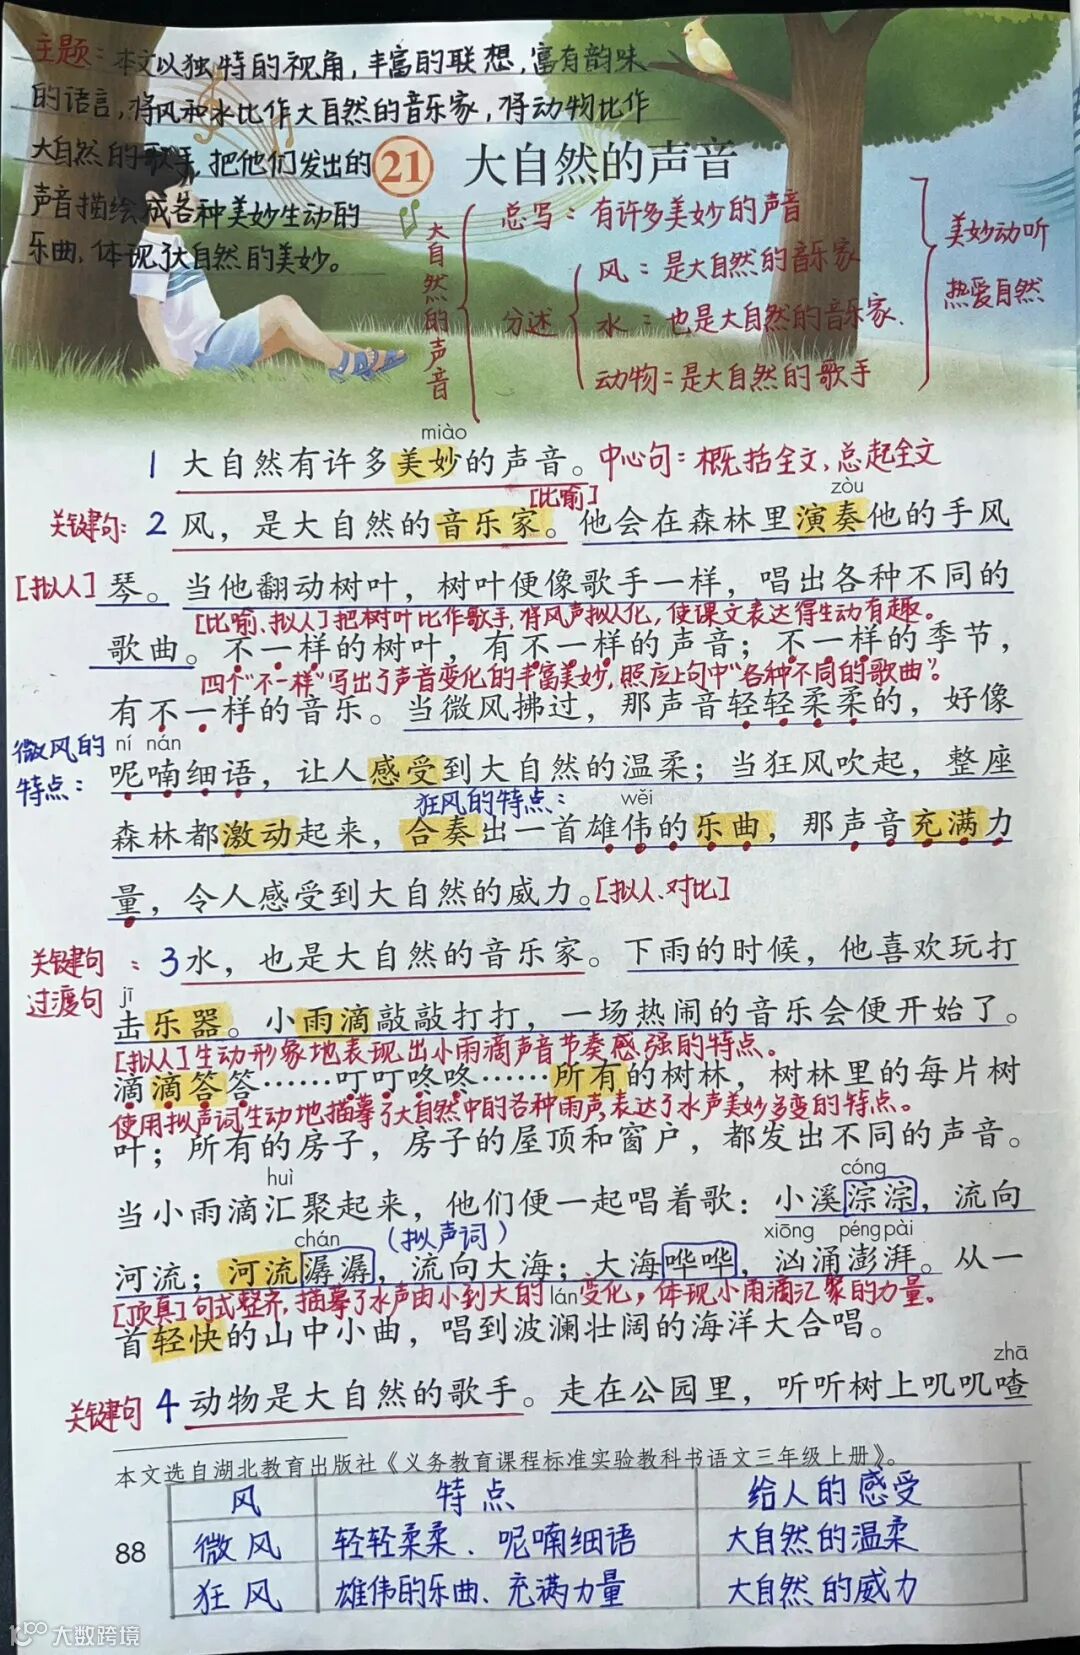 主题：本文以独特的视角，丰富的联想，富有韵味
的语言，将风和水比作大自然的音乐家，将动物比作
大自然的歌手，把他们发出的
声音描绘成各种美妙生动的
乐曲，体现了大自然的美妙。
21 大自然的声音
大自然的声音
总写：有许多美妙的声音
分述
风：是大自然的音乐家
水：也是大自然的音乐家.
动物：是大自然的歌手
美妙动听
热爱自然
miào
1 大自然有许多美妙的声音。中心句：概括全文，总起全文
[比喻] zòu
关键句：2 风，是大自然的音乐家。他会在森林里演奏他的手风
[拟人] 琴。当他翻动树叶，树叶便像歌手一样，唱出各种不同的
[比喻、拟人]把树叶比作歌手，将风声拟人化，使课文表达得生动有趣。
歌曲。不一样的树叶，有不一样的声音；不一样的季节，
四个“不一样”写出了声音变化的丰富美妙，照应上句中“各种不同的歌曲”。
有不一样的音乐。当微风拂过，那声音轻轻柔柔的，好像
微风的特点：
ní nán
呢喃细语，让人感受到大自然的温柔；当狂风吹起，整座
狂风的特点： wěi
森林都激动起来，合奏出一首雄伟的乐曲，那声音充满力
量，令人感受到大自然的威力。[拟人、对比]
关键句
过渡句
：3水，也是大自然的音乐家。下雨的时候，他喜欢玩打
jī
击乐器。小雨滴敲敲打打，一场热闹的音乐会便开始了。
[拟人]生动形象地表现出小雨滴声音节奏感强的特点。
滴滴答答……叮叮咚咚……所有的树林，树林里的每片树
使用拟声词生动地描摹了大自然中的各种雨声，表达了水声美妙多变的特点。
叶；所有的房子，房子的屋顶和窗户，都发出不同的声音。
huì cóng
当小雨滴汇聚起来，他们便一起唱着歌：小溪淙淙，流向
chán （拟声词） xiōng péng pài
河流；河流潺潺，流向大海；大海哗哗，汹涌澎湃。从一
[顶真]句式整齐，描摹了水声由小到大的变化，体现小雨滴汇聚的力量。
lán
首轻快的山中小曲，唱到波澜壮阔的海洋大合唱。
zhā
关键句 4 动物是大自然的歌手。走在公园里，听听树上叽叽喳
本文选自湖北教育出版社《义务教育课程标准实验教科书语文三年级上册》。
风 特点 给人的感受
微风 轻轻柔柔、呢喃细语 大自然的温柔
狂风 雄伟的乐曲、充满力量 大自然的威力
88
大数跨境